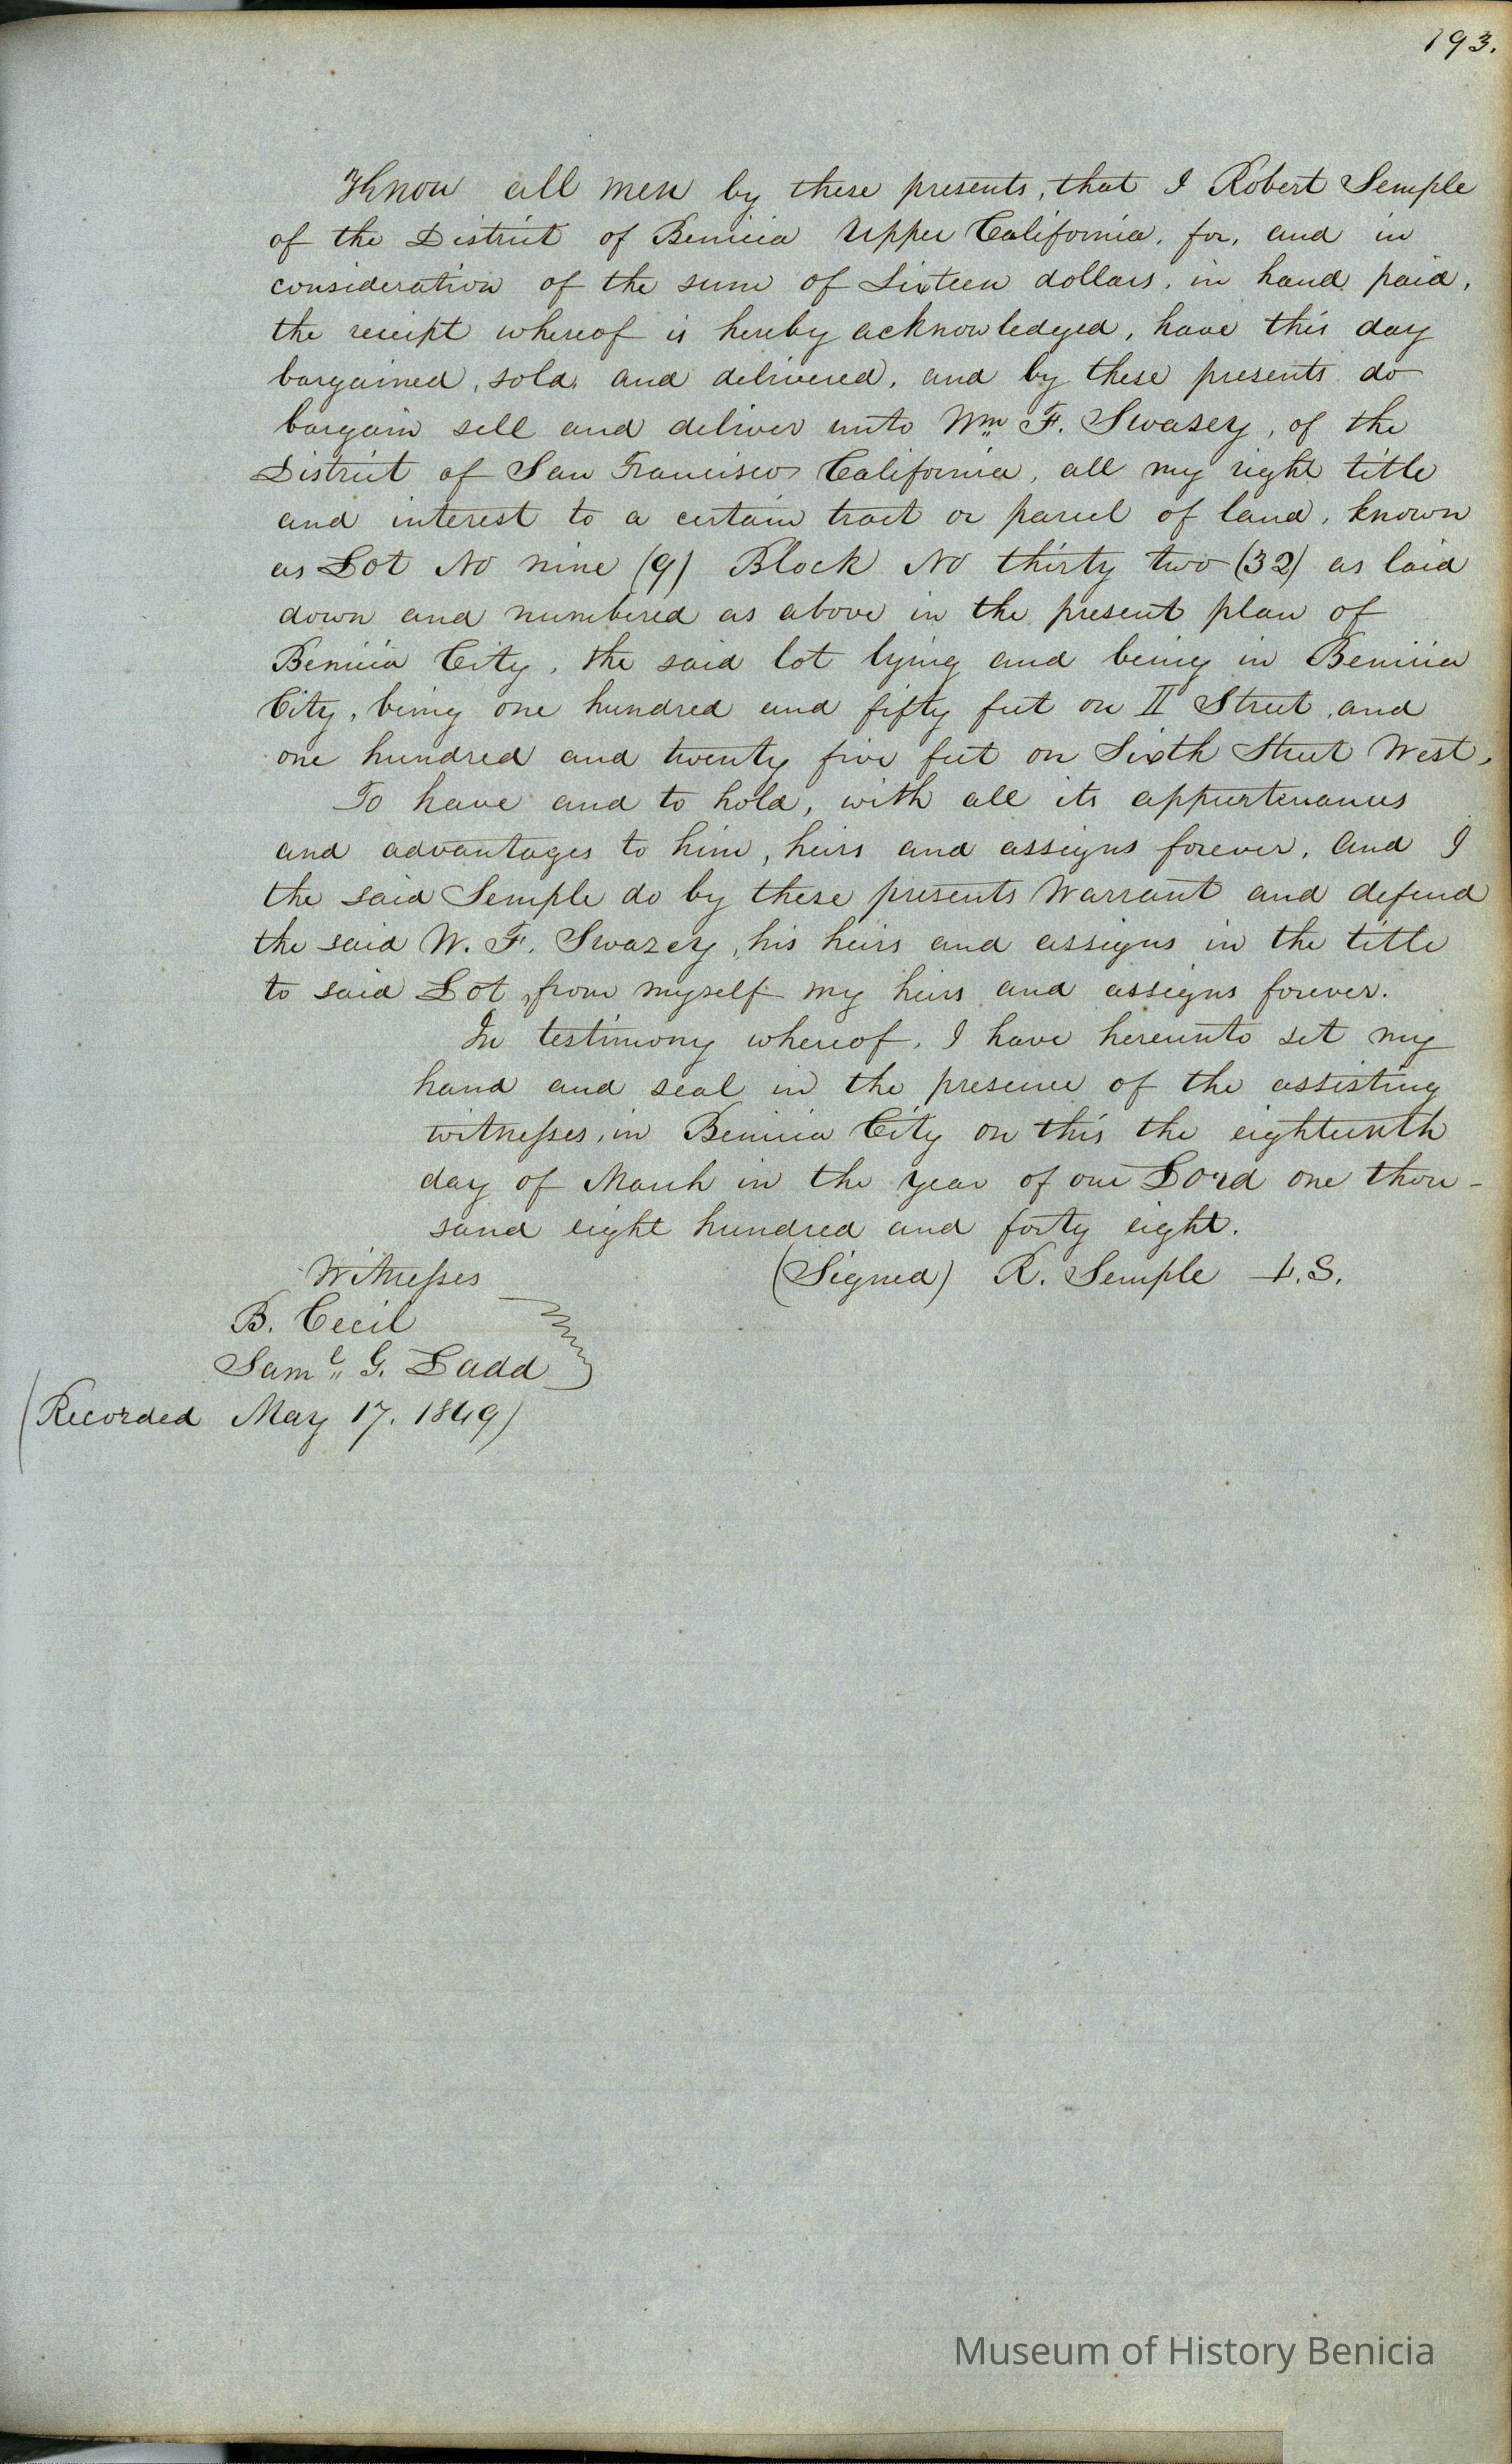 193.
Know all men by these presents, that I Robert Semple
of the District of Benicia Upper California, for, and in
consideration of the sum of Sixteen dollars, in hand paid,
the receipt whereof is hereby acknowledged, have this day
bargained, sold, and delivered, and by these presents do
bargain sell and deliver unto Wm F. Swasey, of the
District of San Francisco California, all my right title
and interest to a certain tract or parcel of land, known
as Lot No nine (9) Block No thirty two (32) as laid
down and numbered as above in the present plan of
Benicia City, the said lot lying and being in Benicia
City, being one hundred and fifty feet on II Street, and
one hundred and twenty five feet on Sixth Street West,
To have and to hold, with all its appurtenances
and advantages to him, heirs and assigns forever, And I
the said Semple do by these presents Warrant and defend
the said W. F. Swazey, his heirs and assigns in the title
to said Lot, from myself my heirs and assigns forever.
In testimony whereof, I have hereunto set my
hand and seal in the presence of the assisting
witnesses, in Benicia City on this the eighteenth
day of March in the year of our Lord one thou-
sand eight hundred and forty eight.
Witnesses (Signed) R. Semple L.S.
B. Cecil
Saml G. Ladd
(Recorded May 17. 1849)
Museum of History Benicia